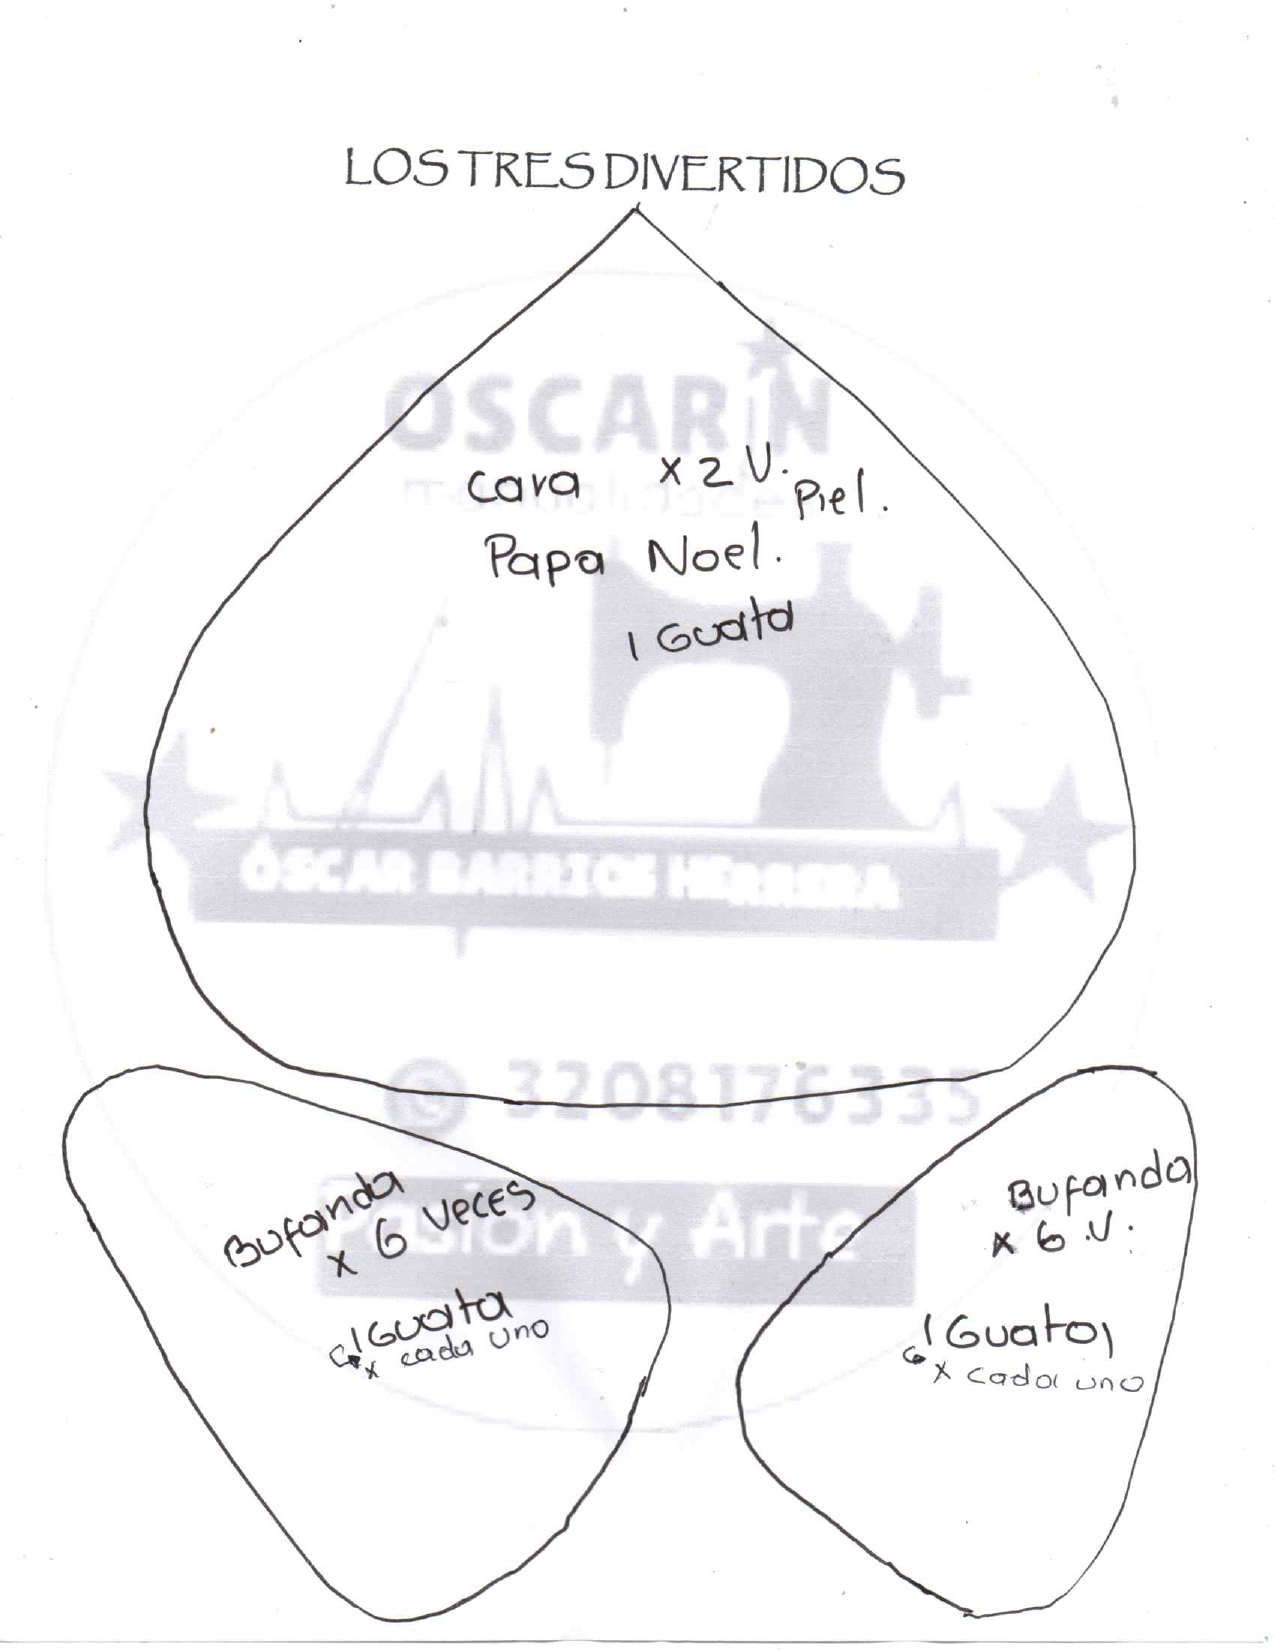 LOS TRES DIVERTIDOS
OSCARiN
cara x 2 V. Piel.
Papa Noel.
1 Guata
ÓSCAR BARRIOS HERRERA
3208176335
Pasión y Arte
Bufanda
x 6 veces
1 Guata
x cada uno
Bufanda
x 6 .V.
1 Guata
x cada uno